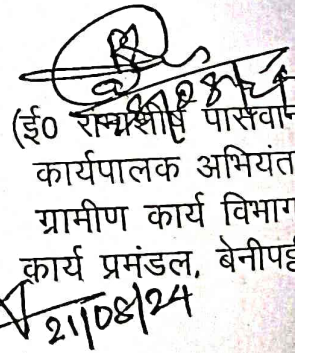 (ई० रामाशीष पासवान
कार्यपालक अभियंत
ग्रामीण कार्य विभाग
कार्य प्रमंडल, बेनीपट्ट
21/08/24